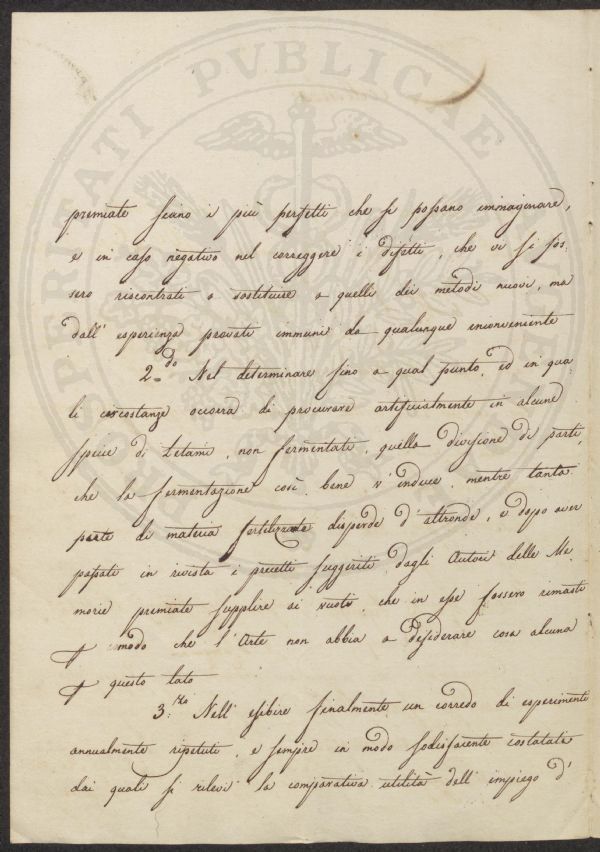 PROSPERITATI PVBLICAE
premiate sieno i più perfetti che si possano immaginare,
e in caso negativo nel correggere i difetti, che vi si fos-
sero riscontrati o sostituire a quelli dei metodi nuovi, ma
dall' esperienza provati immuni da qualunque inconveniente
2.do Nel determinare fino a qual punto, ed in qua
li circostanze occorra di procurare artificialmente in alcune
specie di Letami, non fermentati, quella divisione di parti,
che la fermentazione così bene v'induce, mentre tanta
parte di materia fertilizzante disperde d'altronde, e dopo aver
passati in rivista i precetti suggeriti dagli Autori delle Me
morie premiate supplire ai vuoti, che in esse fossero rimasti
modo che l'Arte non abbia a desiderare cosa alcuna
questo lato
3.zo Nell' esibire finalmente un corredo di esperimenti
annualmente ripetuti, e sempre in modo sodisfacente costatati
dai quali si rilevi la comparativa utilità dell' impiego d'